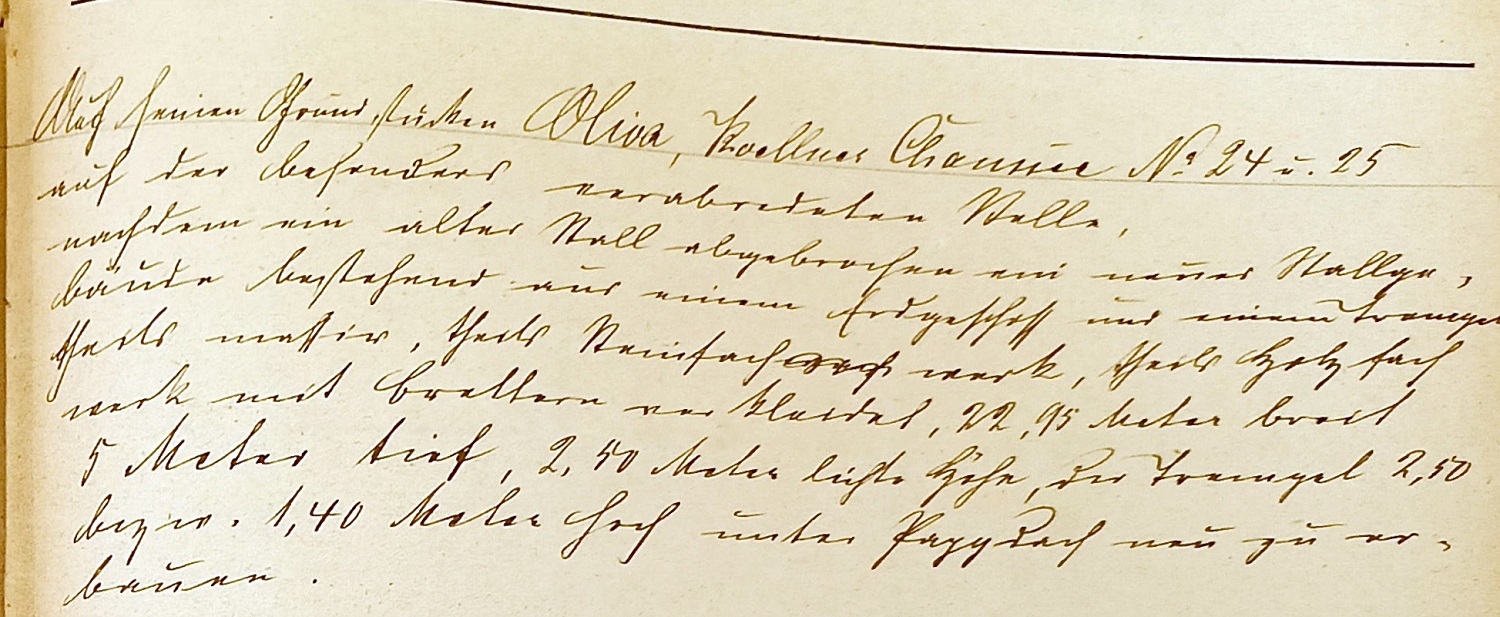 Auf seinen Grundstücken Oliva, Koellner Chaussee No 24 u. 25
auf der besonders verabredeten Stelle,
nachdem ein alter Stall abgebrochen ein neues Stallge-
bäude bestehend aus einem Erdgeschoß und einem Trempel
theils massiv, theils Steinfach werk, theils Holz fach
werk mit Brettern verkleidet, 22,95 Meter breit
5 Meter tief, 2,50 Meter lichte Höhe, der Trempel 2,50
bezw. 1,40 Meter hoch unter Pappdach neu zu er-
bauen.